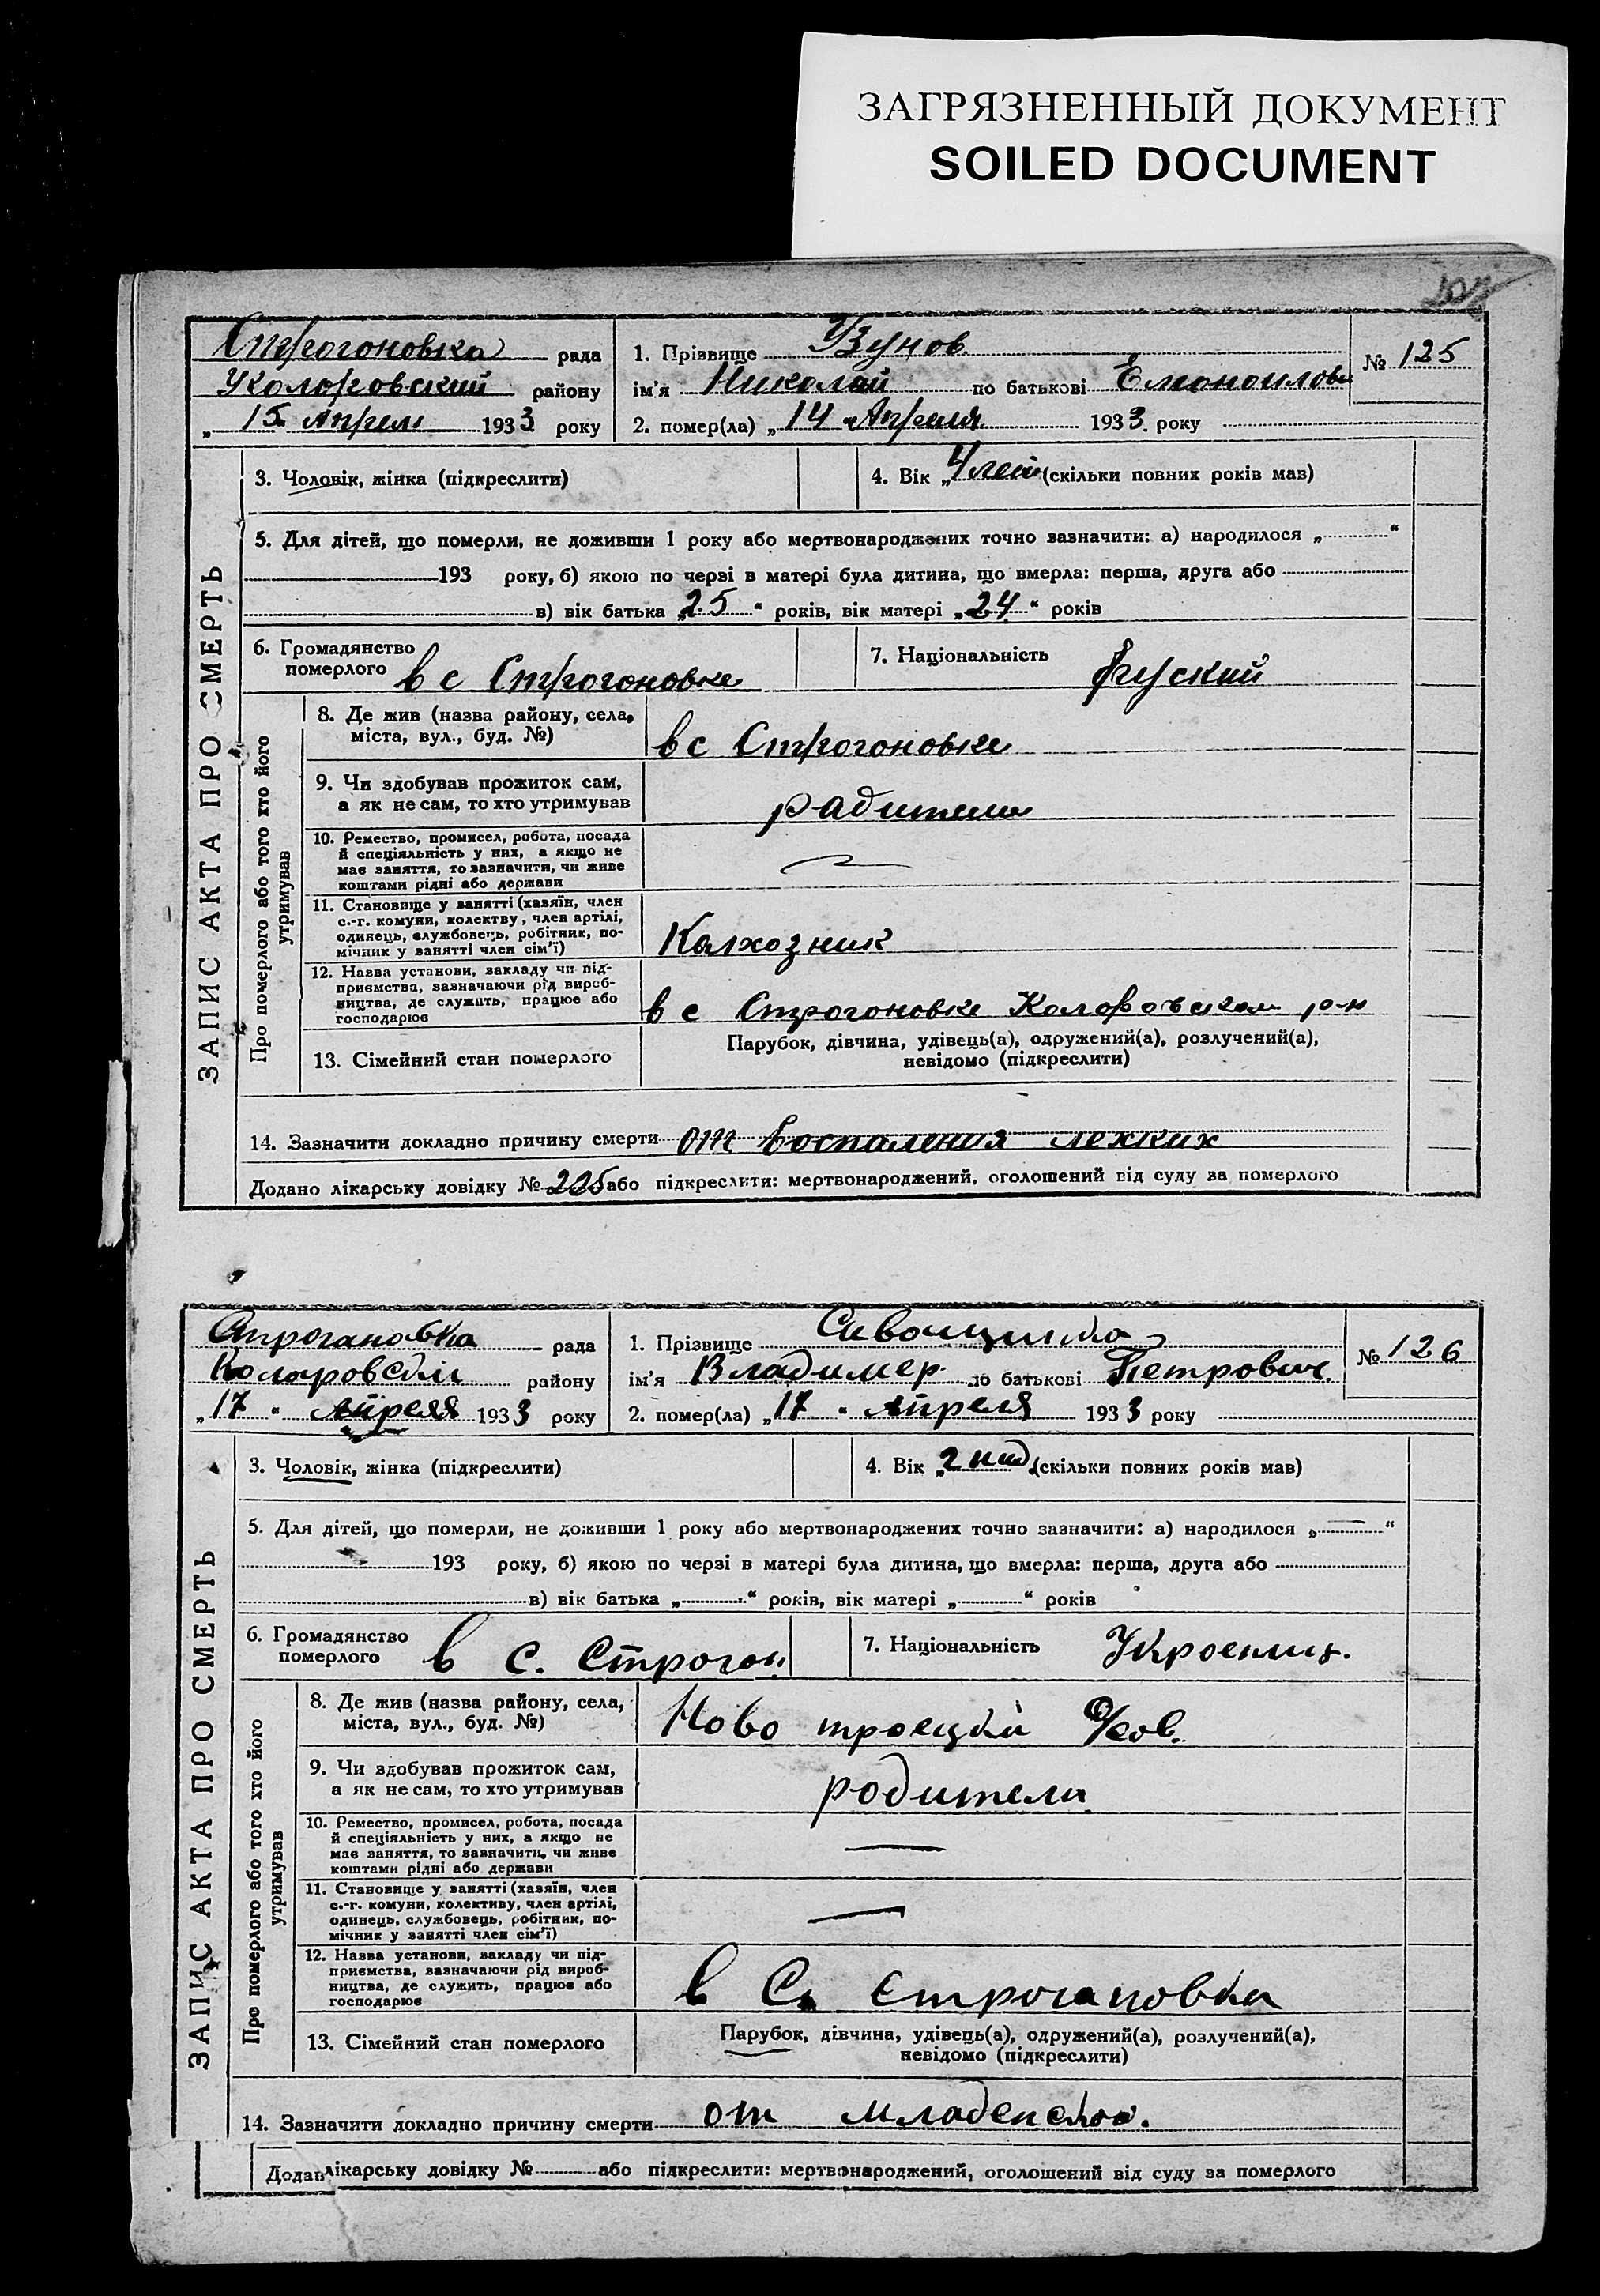 ЗАГРЯЗНЕННЫЙ ДОКУМЕНТ
SOILED DOCUMENT
ЗАПИС АКТА ПРО СМЕРТЬ
Строгоновка рада
Коларовский району
„15" Апрель 1933 року
1. Прізвище Узунов
ім'я Николай по батькові
№ 125
2. помер(ла) „14" Апреля 1933 року
3. Чоловік, жінка (підкреслити)
4. Вік „4 лет" (скільки повних років мав)
5. Для дітей, що померли, не доживши 1 року або мертвонароджених точно зазначити: а) народилося „ “
193 року, б) якою по черзі в матері була дитина, що вмерла: перша, друга або
в) вік батька „25“ років, вік матері „24“ років
6. Громадянство
померлого в с Строгоновке
7. Національність Руский
Про померлого або того хто його
утримував
8. Де жив (назва району, села,
міста, вул., буд. №)
в с Строгоновке
9. Чи здобував прожиток сам,
а як не сам, то хто утримував
радители
10. Ремество, промисел, робота, посада
й спеціяльність у них, а якщо не
має заняття, то зазначити, чи живе
коштами рідні або держави
11. Становище у занятті (хазяїн, член
с.-г. комуни, колектву, член артілі,
одинець, службовець, робітник, по-
мічник у занятті член сім'ї)
Калхозник
12. Назва установи, закладу чи під-
приємства, зазначаючи рід вироб-
ництва, де служить, працює або
господарює
в с Строгоновке Коларовском р-н
13. Сімейний стан померлого
Парубок, дівчина, удівець(а), одружений(а), розлучений(а),
невідомо (підкреслити)
14. Зазначити докладно причину смерти от воспаления лехких
Додано лікарську довідку № 225 або підкреслити: мертвонароджений, оголошений від суду за померлого
ЗАПИС АКТА ПРО СМЕРТЬ
Строгановка рада
району
„17" Апреля 1933 року
1. Прізвище
ім'я Владимер по батькові Петрович.
№ 126
2. помер(ла) „17" Апреля 1933 року
3. Чоловік, жінка (підкреслити)
4. Вік „2 (скільки повних років мав)
5. Для дітей, що померли, не доживши 1 року або мертвонароджених точно зазначити: а) народилося „ — “
193 року, б) якою по черзі в матері була дитина, що вмерла: перша, друга або
в) вік батька „ “ років, вік матері „ “ років
6. Громадянство
померлого в с. Строган
7. Національність
Про померлого або того хто його
утримував
8. Де жив (назва району, села,
міста, вул., буд. №)
Ново троецки
9. Чи здобував прожиток сам,
а як не сам, то хто утримував
родители
10. Ремество, промисел, робота, посада
й спеціяльність у них, а якщо не
має заняття, то зазначити, чи живе
коштами рідні або держави
—
11. Становище у занятті (хазяїн, член
с.-г. комуни, колективу, член артілі,
одинець, службовець, робітник, по-
мічник у занятті член сім'ї)
—
12. Назва установи, закладу чи під-
приємства, зазначаючи рід вироб-
ництва, де служить, працює або
господарює
в С. Строгановка
13. Сімейний стан померлого
Парубок, дівчина, удівець(а), одружений(а), розлучений(а),
невідомо (підкреслити)
14. Зазначити докладно причину смерти от
Додан лікарську довідку № або підкреслити: мертвонароджений, оголошений від суду за померлого